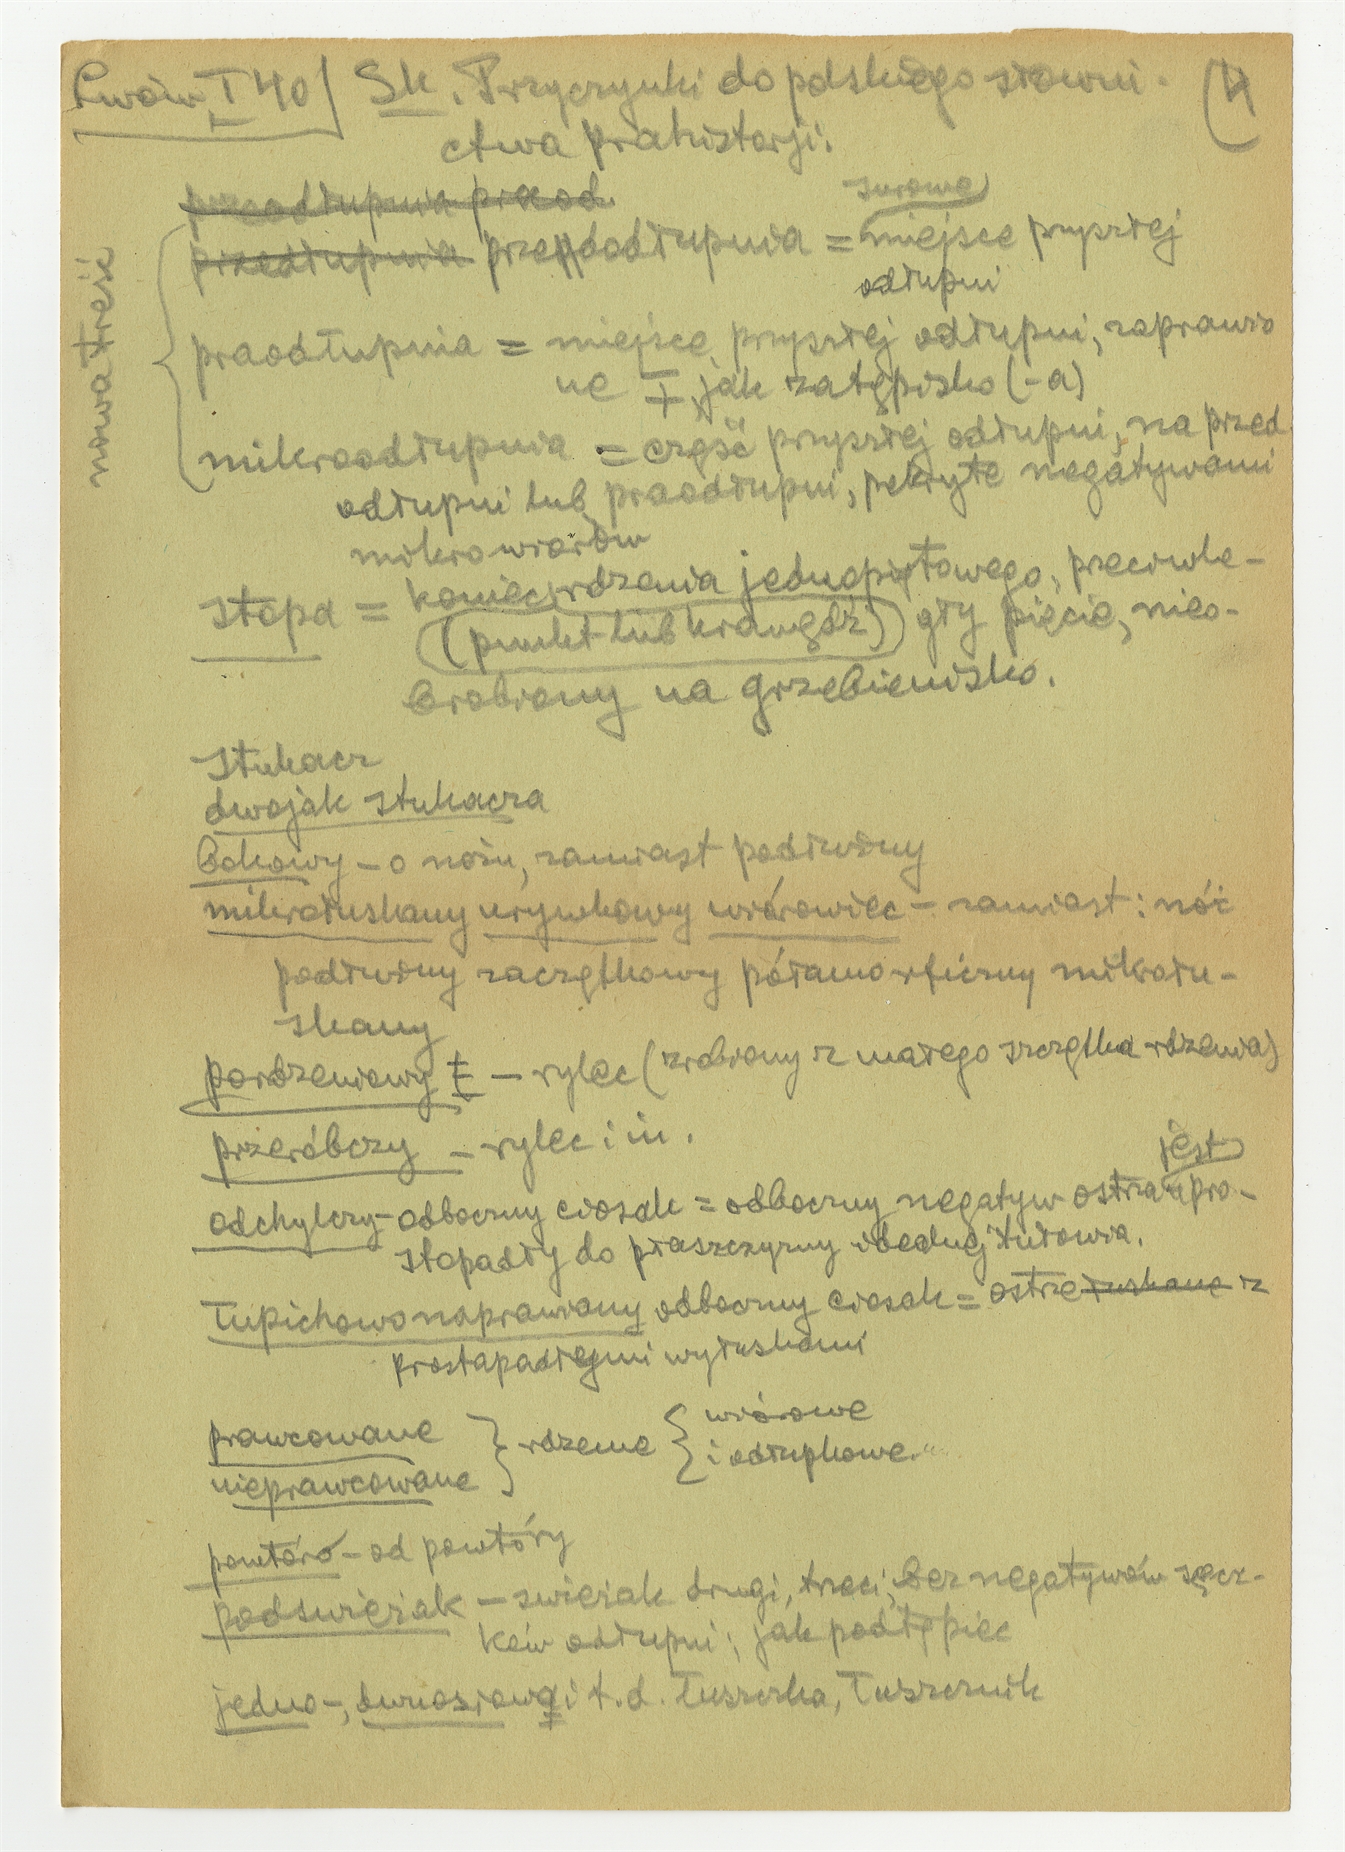 Lwów I 40 Sk. Przyczynki do polskiego słowni- (4
ctwa prahistorji.
przeodłupnia praod.
surowe
przedłupnia przeddodłupnia = miejsce przyszłej
odłupni
nowa treść
praodłupnia = miejsce przyszłej odłupni, zaprawio
ne jak zatępisko (-a)
mikroodłupnia = część przyszłej odłupni, na przed
odłupni lub praodłupni, pokryte negatywami
mikrowiórów
stopa = koniec rdzenia jednopiętowego, przeciwle-
(punkt lub krawędź) gły pięcie, nieo-
brobiony na grzebienisko.
stukacz
dwojak stukacza
bokowy – o nożu, zamiast podłużny
mikrołuskany urywkowy wiórowiec – zamiast: nóż
podłużny zaczątkowy półamorficzny mikrołu-
skany
pordzeniowy – rylec (zrobiony z małego szczątka rdzenia)
przeróbczy – rylec i in.
jest
odchylczy – odboczny ciosak = odboczny negatyw ostrza pro-
stopadły do płaszczyzny obecnej tułowia.
łupichowo naprawiany odboczny ciosak = ostrze łuskane z
prostopadłymi wyłuskami
prawcowane } rdzenie { wiórowe
nieprawcowane i odłupkowe.
powtóro – od powtóry
podświeżak – świeżak drugi, trzeci, bez negatywów sęcz-
ków odłupni; jak podtępiec
jedno-, dwuosiowa i t.d. łuszczka, łuszcznik